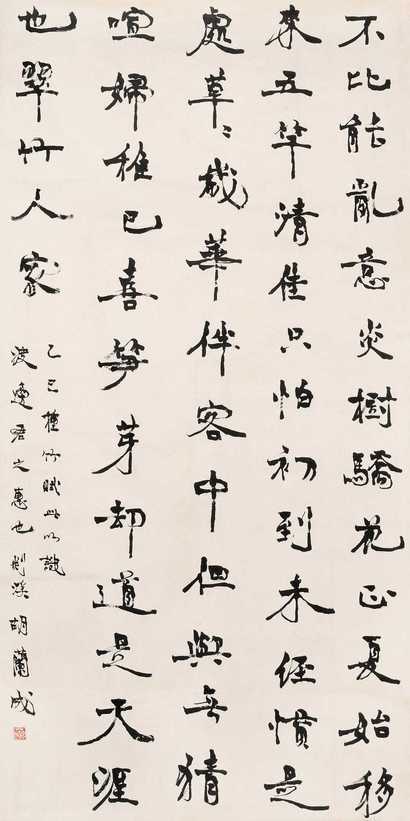 不比能亂意炎樹驕花正夏始移
來五竿清佳只怕初到未經慣是
處草〻歲華伴客中但與無猜
喧婦稚已喜筍芽却道是天涯
也翠竹人家
乙巳種竹賦此以謝
渡邊君之惠也剡溪胡蘭成